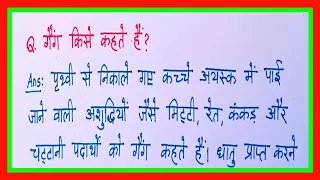 Q. गैंग किसे कहते हैं?
Ans: पृथ्वी से निकाले गए कच्चे अयस्क में पाई
जाने वाली अशुद्धियों जैसे मिट्टी, रेत, कंकड़ और
चट्टानी पदार्थों को गैंग कहते हैं। धातु प्राप्त करने